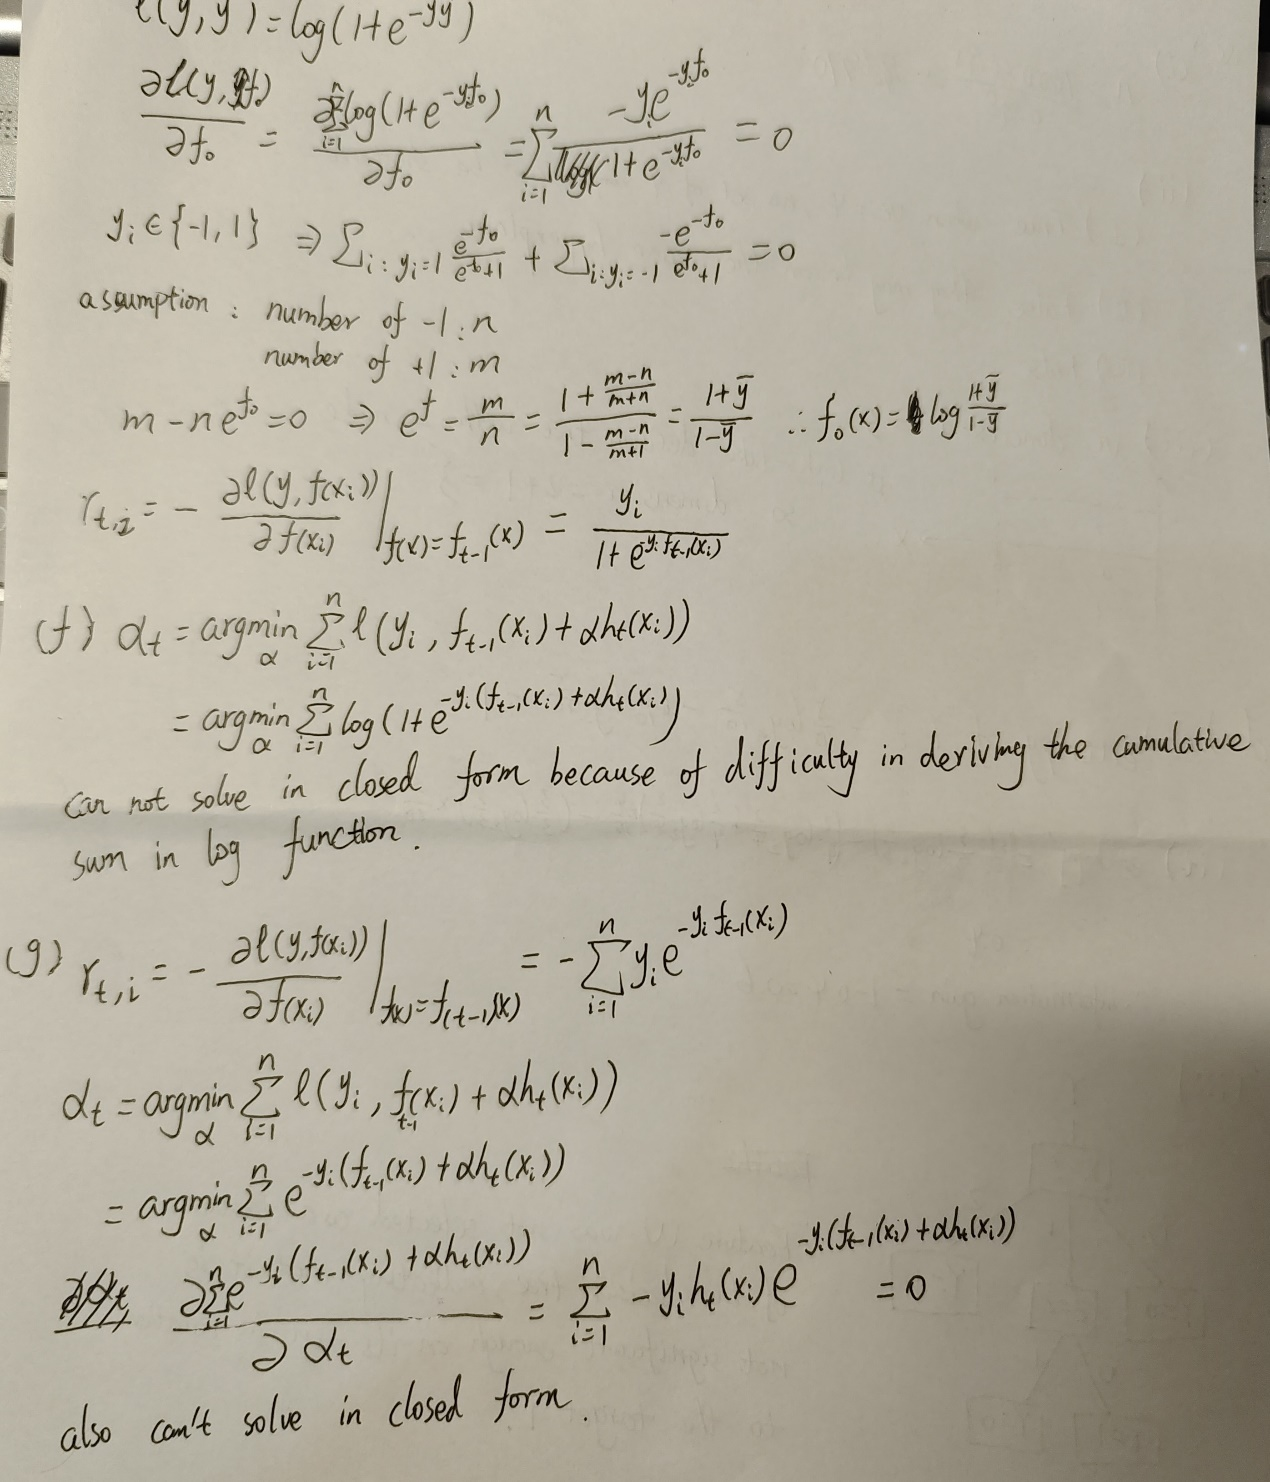 ℓ(y, y) = log(1+e^{-yy})
∂ℓ(y, f₀)/∂f₀ = ∂Σ_{i=1}^{n} log(1+e^{-y_i f₀})/∂f₀ = Σ_{i=1}^{n} -y_i e^{-y_i f₀}/(1+e^{-y_i f₀}) = 0
y_i ∈ {-1, 1} ⇒ Σ_{i: y_i=1} e^{-f₀}/(e^{-f₀}+1) + Σ_{i: y_i=-1} -e^{-f₀}/(e^{f₀}+1) = 0
assumption : number of -1 : n
number of +1 : m
m - ne^{f₀} = 0 ⇒ e^f = m/n = (1 + (m-n)/(m+n))/(1 - (m-n)/(m+1)) = (1+ȳ)/(1-ȳ) ∴ f₀(x) = log (1+ȳ)/(1-ȳ)
r_{t,i} = - ∂ℓ(y, f(x_i))/∂f(x_i) |_{f(x)=f_{t-1}(x)} = y_i/(1+e^{y_i f_{t-1}(x_i)})
(f) α_t = argmin_α Σ_{i=1}^{n} ℓ(y_i, f_{t-1}(x_i) + αh_t(x_i))
= argmin_α Σ_{i=1}^{n} log(1+e^{-y_i(f_{t-1}(x_i)+αh_t(x_i))})
can not solve in closed form because of difficulty in deriving the cumulative
sum in log function.
(g) r_{t,i} = - ∂ℓ(y,f(x_i))/∂f(x_i) |_{f(x)=f_{(t-1)}(x)} = - Σ_{i=1}^{n} y_i e^{-y_i f_{t-1}(x_i)}
α_t = argmin_α Σ_{i=1}^{n} ℓ(y_i, f_{t-1}(x_i) + αh_t(x_i))
= argmin_α Σ_{i=1}^{n} e^{-y_i(f_{t-1}(x_i)+αh_t(x_i))}
∂Σ_{i=1}^{n} e^{-y_i(f_{t-1}(x_i)+αh_t(x_i))}/∂α_t = Σ_{i=1}^{n} -y_i h_t(x_i) e^{-y_i(f_{t-1}(x_i)+αh_t(x_i))} = 0
also can't solve in closed form.